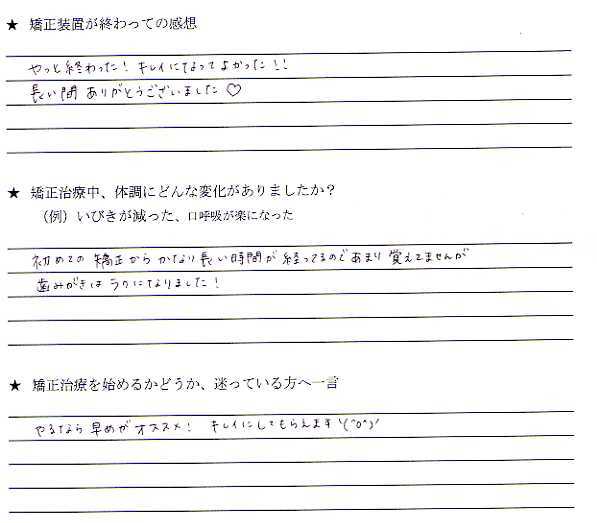 ★ 矯正装置が終わっての感想
やっと終わった！キレイになってよかった！！
長い間ありがとうございました♡
★ 矯正治療中、体調にどんな変化がありましたか？
（例）いびきが減った、口呼吸が楽になった
初めての矯正からかなり長い時間が経ってるのであまり覚えてませんが
歯みがきはラクになりました！
★ 矯正治療を始めるかどうか、迷っている方へ一言
やるなら早めがオススメ！ キレイにしてもらえます\(^o^)/